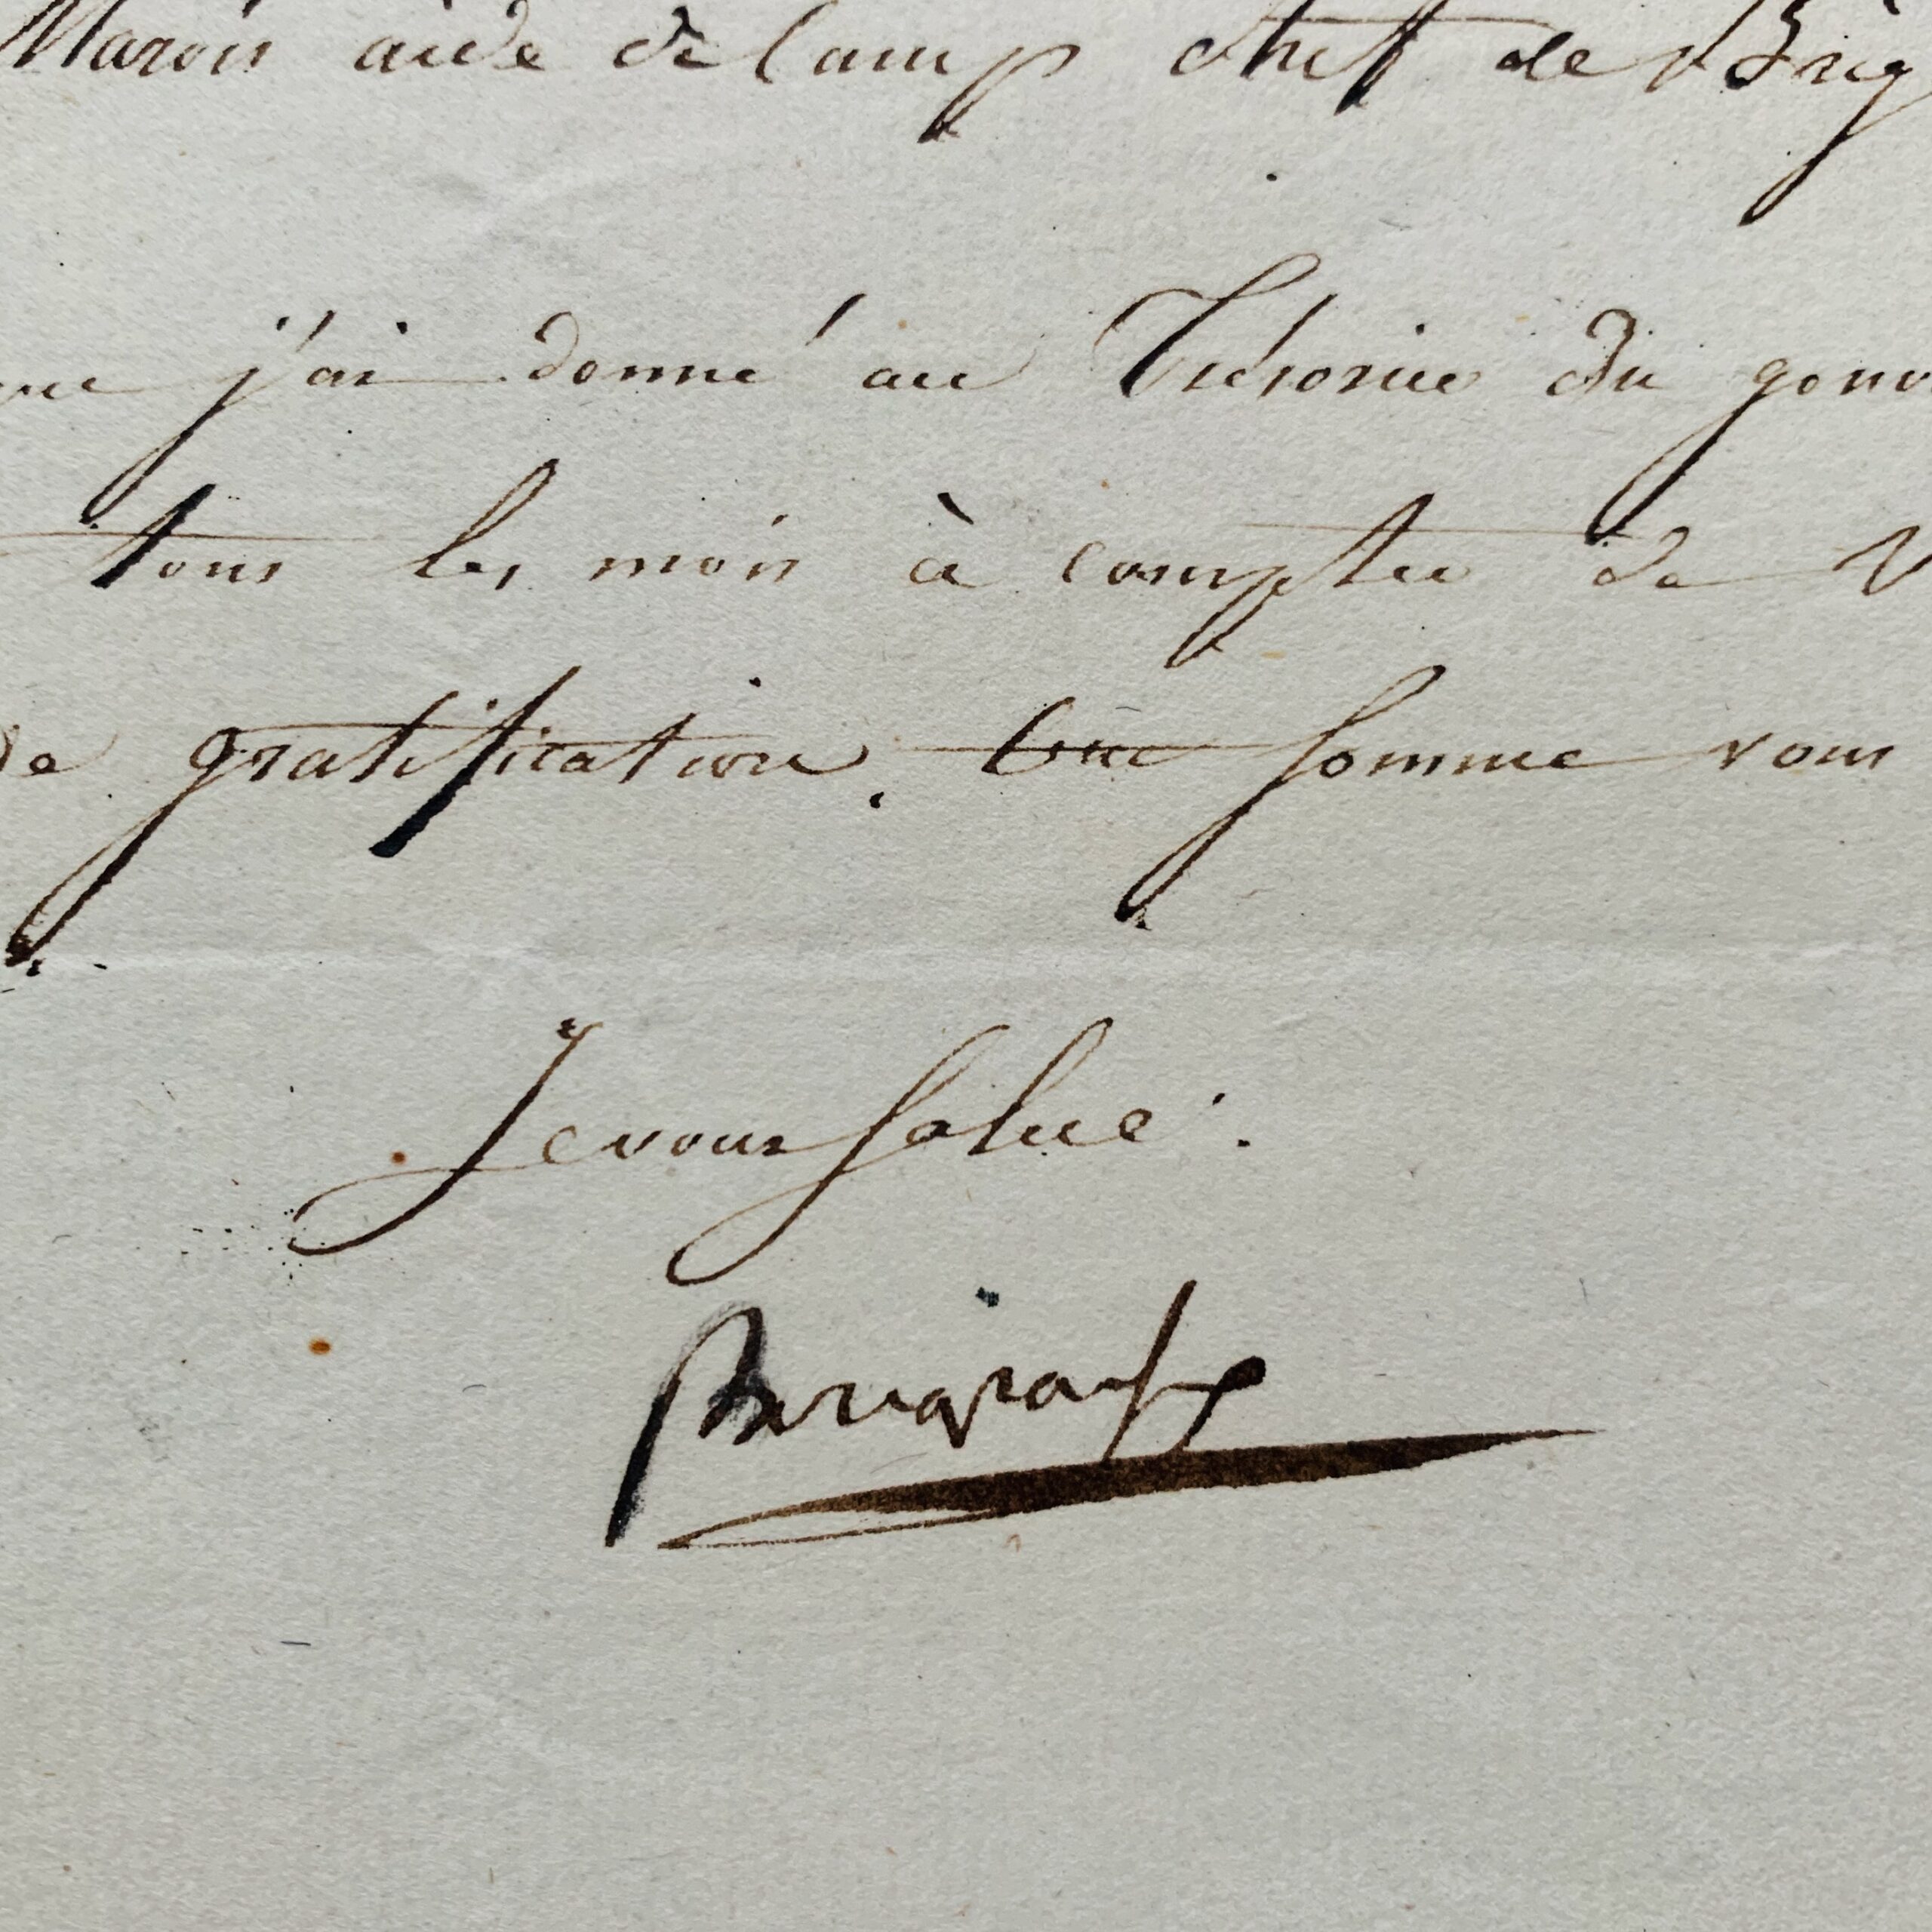 Marois aide de Camp chef de Brig
j'ai donné au Trésorier du gouv
tous les mois à compter de V
de gratification. Cette somme vous
Je vous salue.
Bonaparte